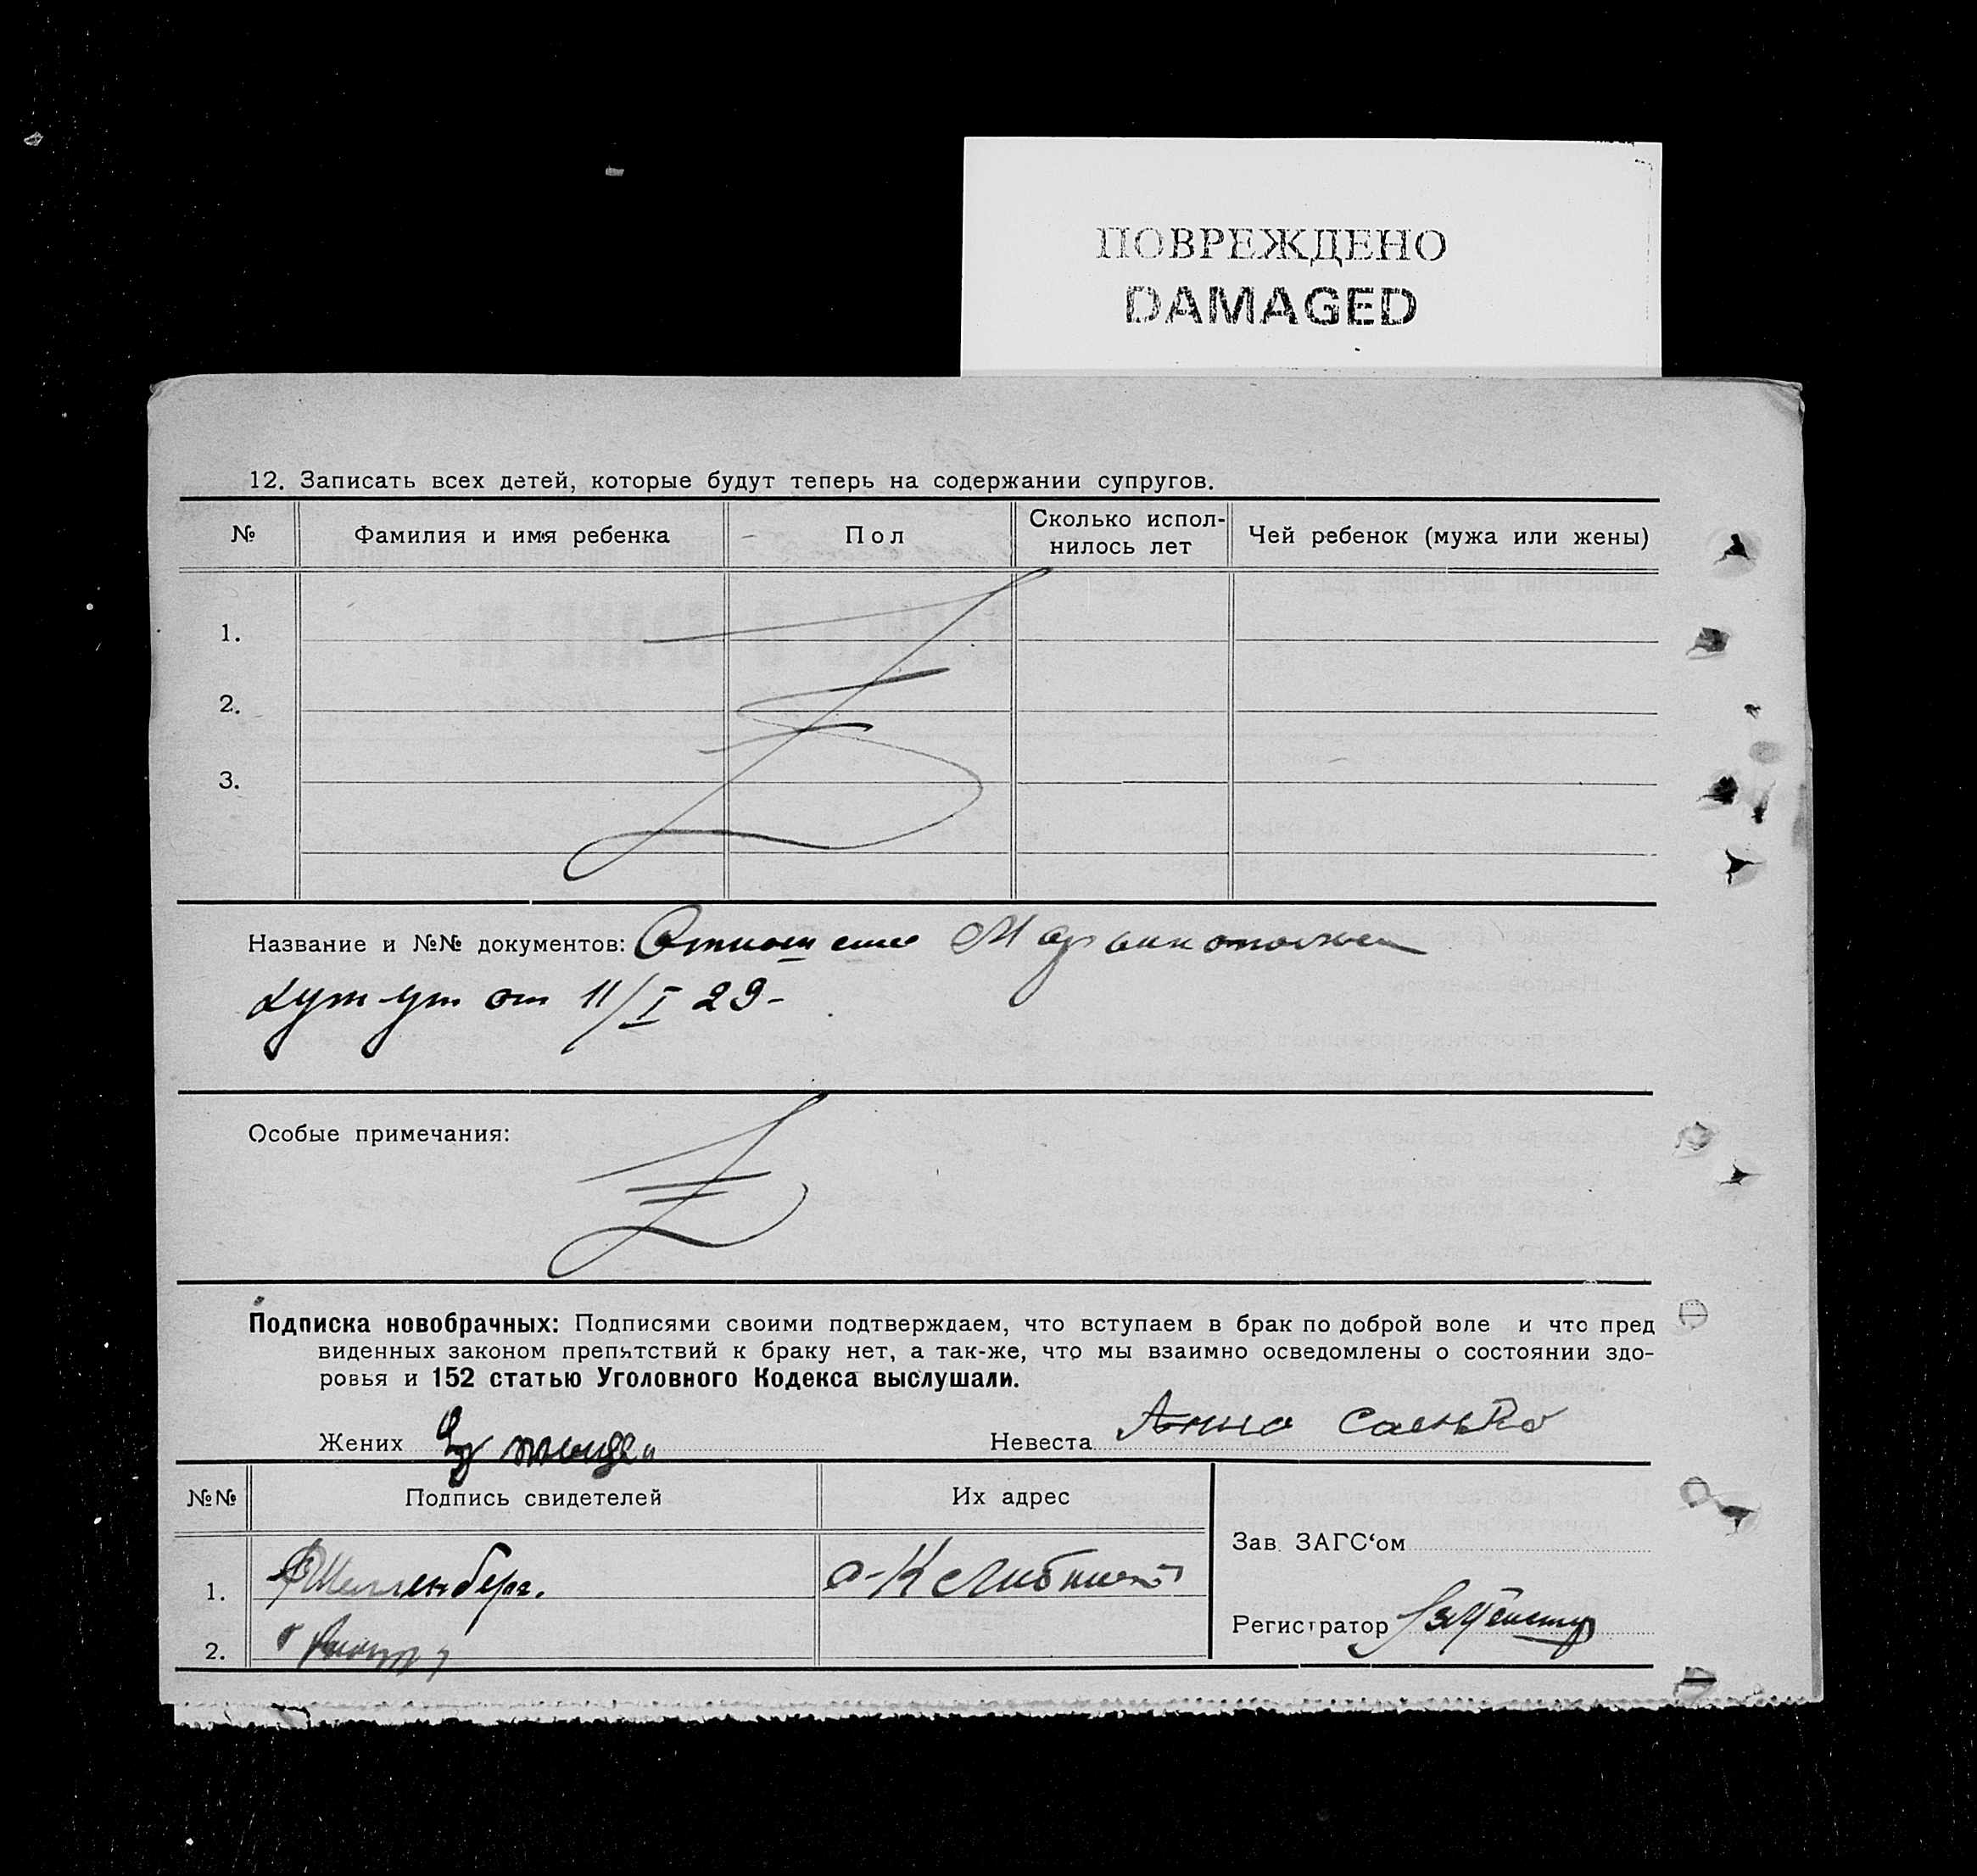 ПОВРЕЖДЕНО
DAMAGED
12. Записать всех детей, которые будут теперь на содержании супругов.
№ Фамилия и имя ребенка Пол Сколько испол- нилось лет Чей ребенок (мужа или жены)
1.
2.
3.
Название и №№ документов: Отношение
от 11/I 29-
Особые примечания:
Подписка новобрачных: Подписями своими подтверждаем, что вступаем в брак по доброй воле и что пред
виденных законом препятствий к браку нет, а так-же, что мы взаимно осведомлены о состоянии здо-
ровья и 152 статью Уголовного Кодекса выслушали.
Жених Невеста Анна Саенко
№№ Подпись свидетелей Их адрес
Зав. ЗАГС‘ом
1.
Регистратор
2.